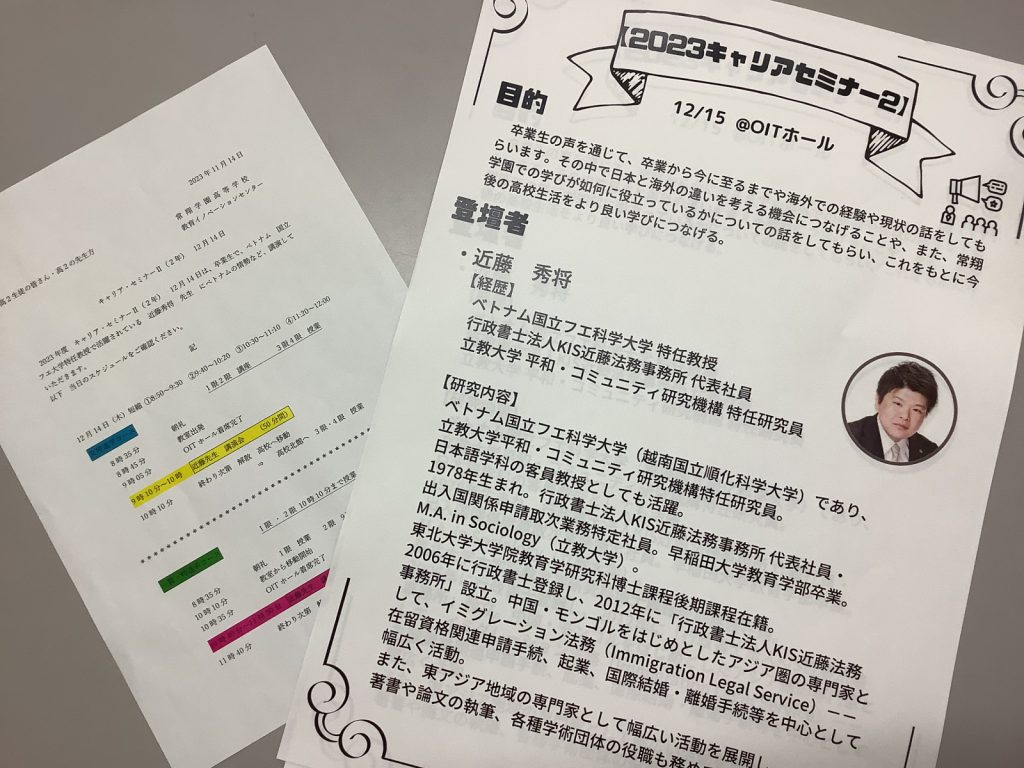 2023年11月14日
常翔学園高等学校
教育イノベーションセンター
高2生徒の皆さん・高2の先生方
キャリア・セミナーⅡ(2年) 12月14日
2023年度 キャリア・セミナーⅡ(2年) 12月14日は、卒業生で、ベトナム 国立
フエ大学特任教授で活躍されている 近藤秀将 先生 にベトナムの情勢など、講演して
いただきます。
以下 当日のスケジュールをご確認ください。
記
12月14日(木)短縮 ①8:50~9:30 ②9:40~10:20 ③10:30~11:10 ④11:20~12:00
1限2限 講座 3限4限 授業
8時35分 朝礼
8時45分 教室出発
9時05分 OITホール着席完了
9時10分~10時 近藤先生 講演会 (50分間)
10時10分 終わり次第 解散 高校へ移動
⇒ 高校北館へ 3限・4限 授業
1限・2限 10時10分まで授業
8時35分 朝礼 1限 授業
10時10分 教室から移動開始
10時35分 OITホール着席完了
11時40分 終わり次第
【2023キャリアセミナー2】
12/15 @OITホール
目的
卒業生の声を通じて、卒業から今に至るまでや海外での経験や現状の話をしても
らいます。その中で日本と海外の違いを考える機会につなげることや、また、常翔
学園での学びが如何に役立っているかについての話をしてもらい、これをもとに今
後の高校生活をより良い学びにつなげる。
登壇者
・近藤 秀将
【経歴】
ベトナム国立フエ科学大学 特任教授
行政書士法人KIS近藤法務事務所 代表社員
立教大学 平和・コミュニティ研究機構 特任研究員
【研究内容】
ベトナム国立フエ科学大学(越南国立順化科学大学)であり、
立教大学平和・コミュニティ研究機構特任研究員。
日本語学科の客員教授としても活躍。
1978年生まれ。行政書士法人KIS近藤法務事務所 代表社員・
出入国関係申請取次業務特定社員。早稲田大学教育学部卒業。
M.A. in Sociology(立教大学)。
東北大学大学院教育学研究科博士課程後期課程在籍。
2006年に行政書士登録し、2012年に「行政書士法人KIS近藤法務
事務所」設立。中国・モンゴルをはじめとしたアジア圏の専門家と
して、イミグレーション法務(Immigration Legal Service)――
在留資格関連申請手続、起業、国際結婚・離婚手続等を中心として
幅広く活動。
また、東アジア地域の専門家として幅広い活動を展開し
著書や論文の執筆、各種学術団体の役職も務め